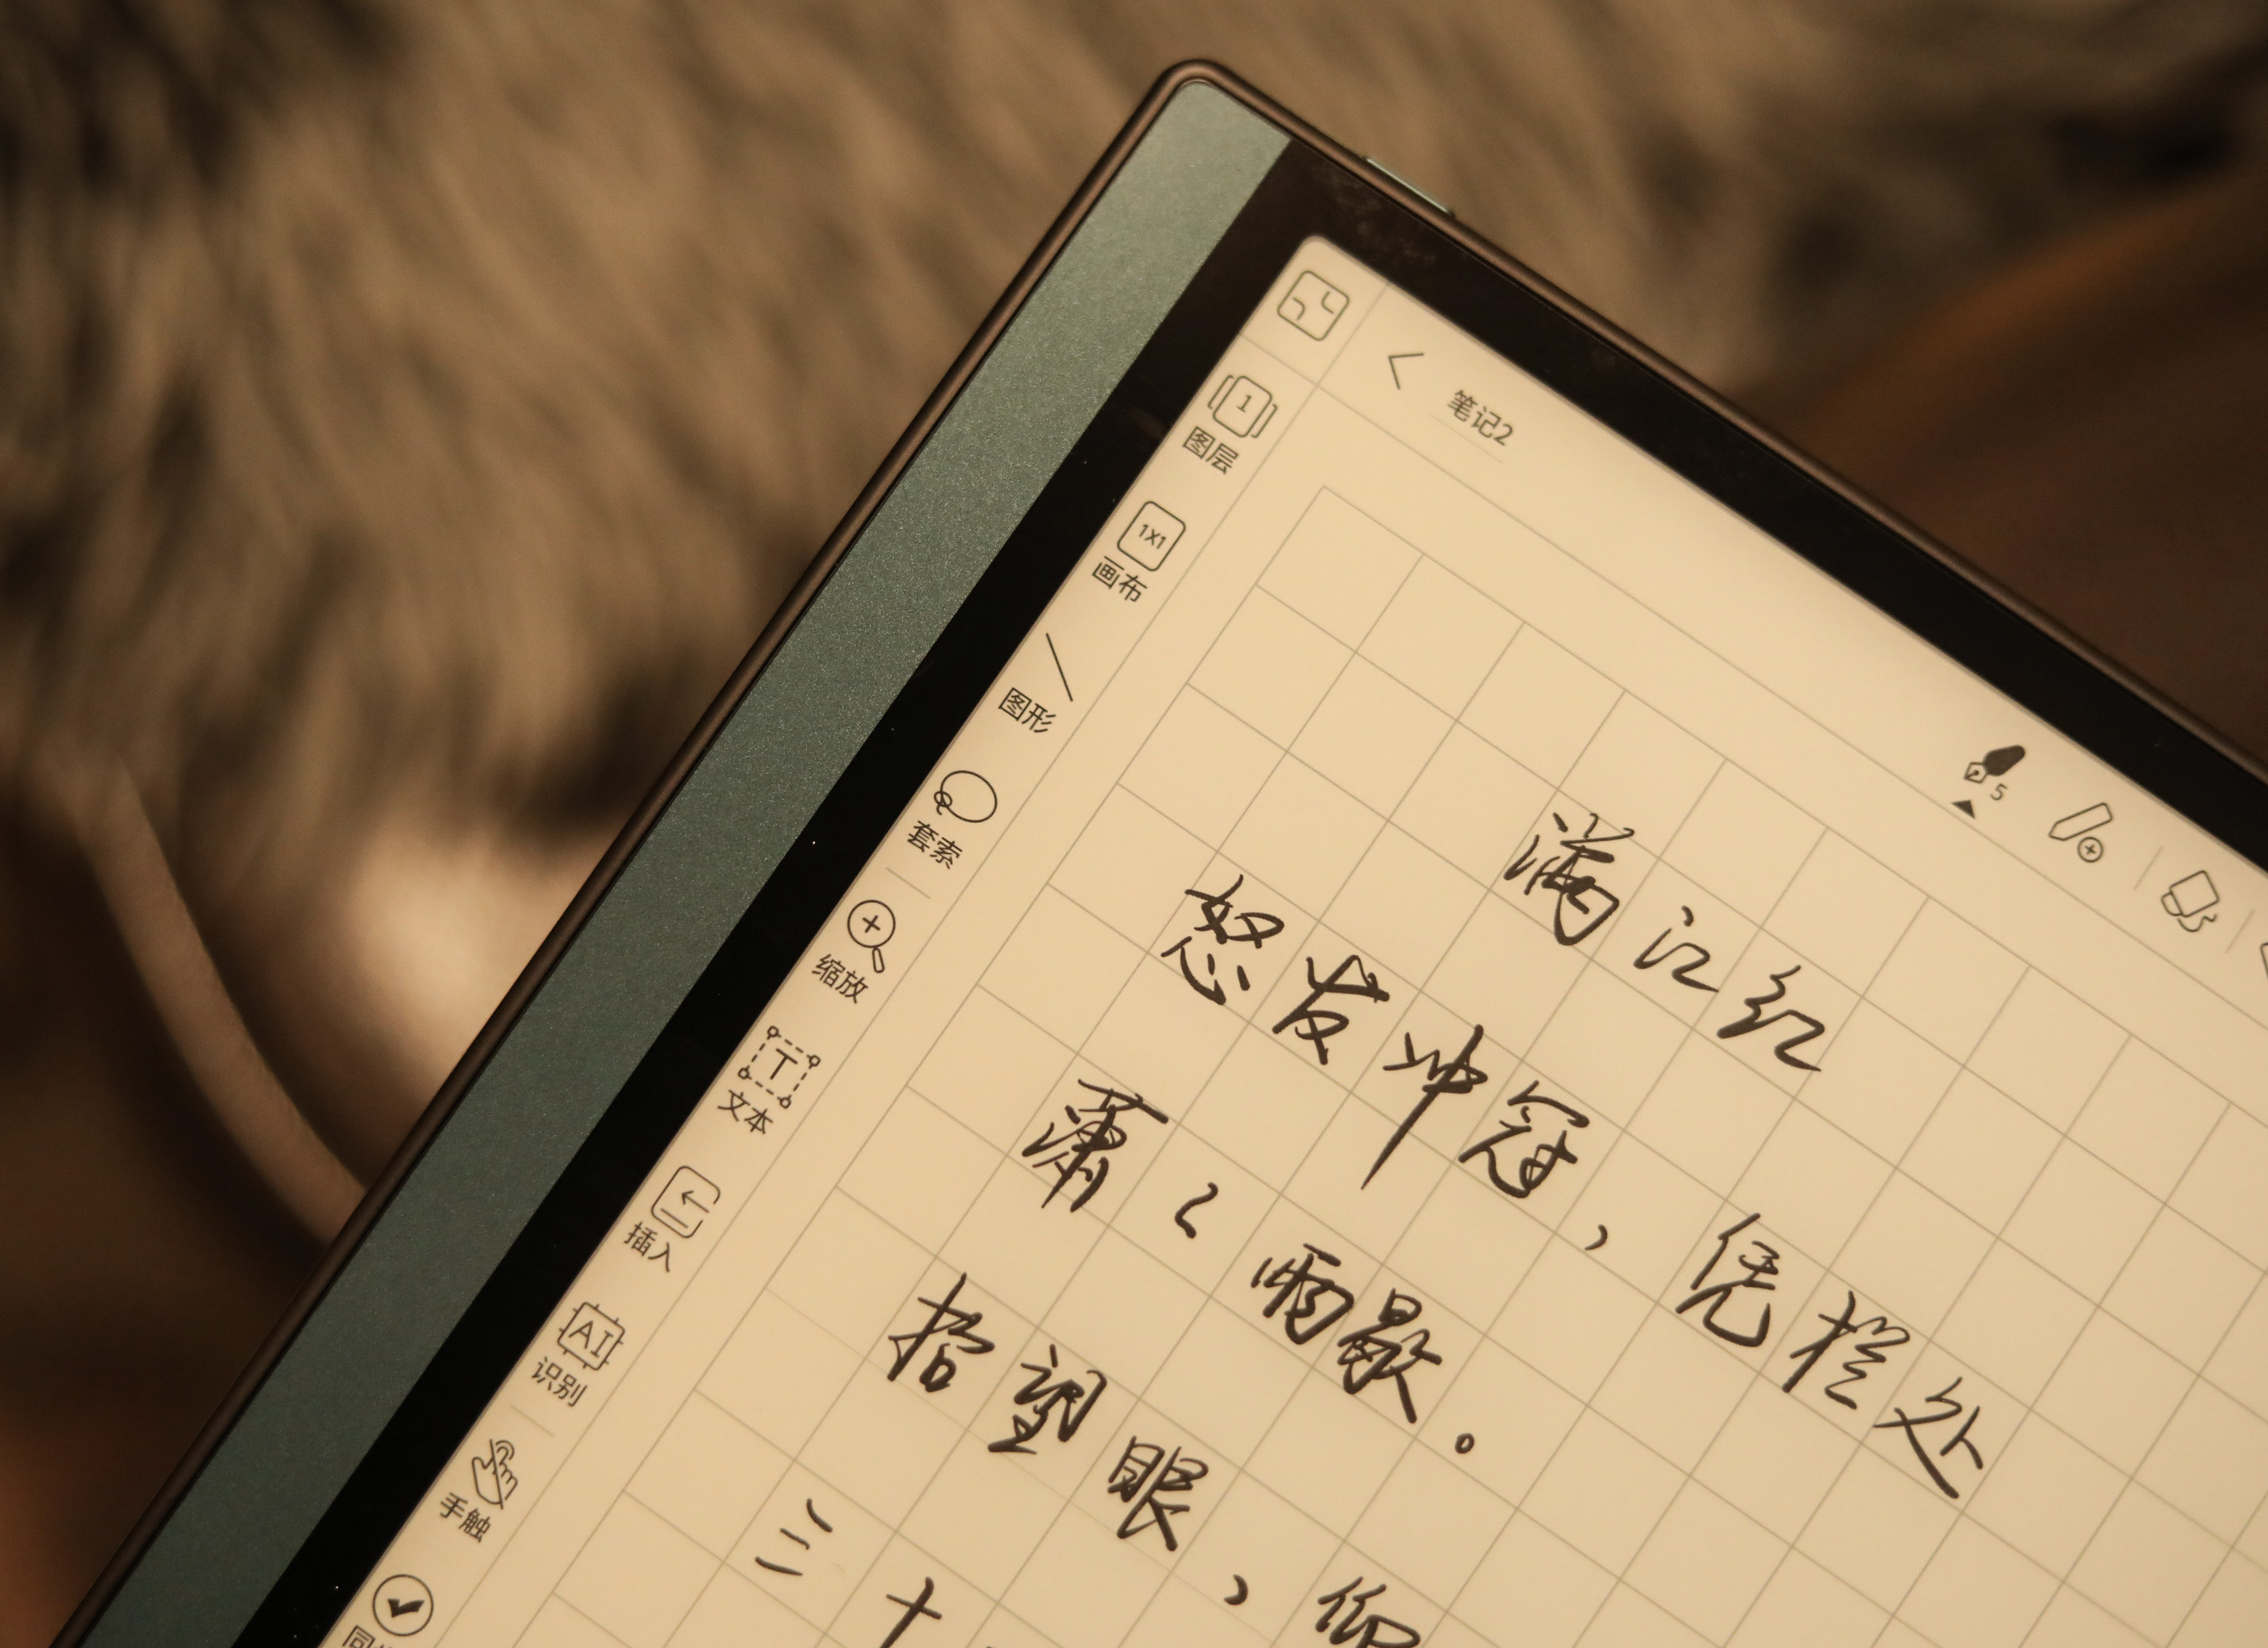 笔记2
1
图层
1X1
画布
图形
套索
缩放
T
文本
插入
AI
识别
手触
同
5
满江红
怒发冲冠，凭栏处
萧〻雨歇。
抬望眼，仰
三十